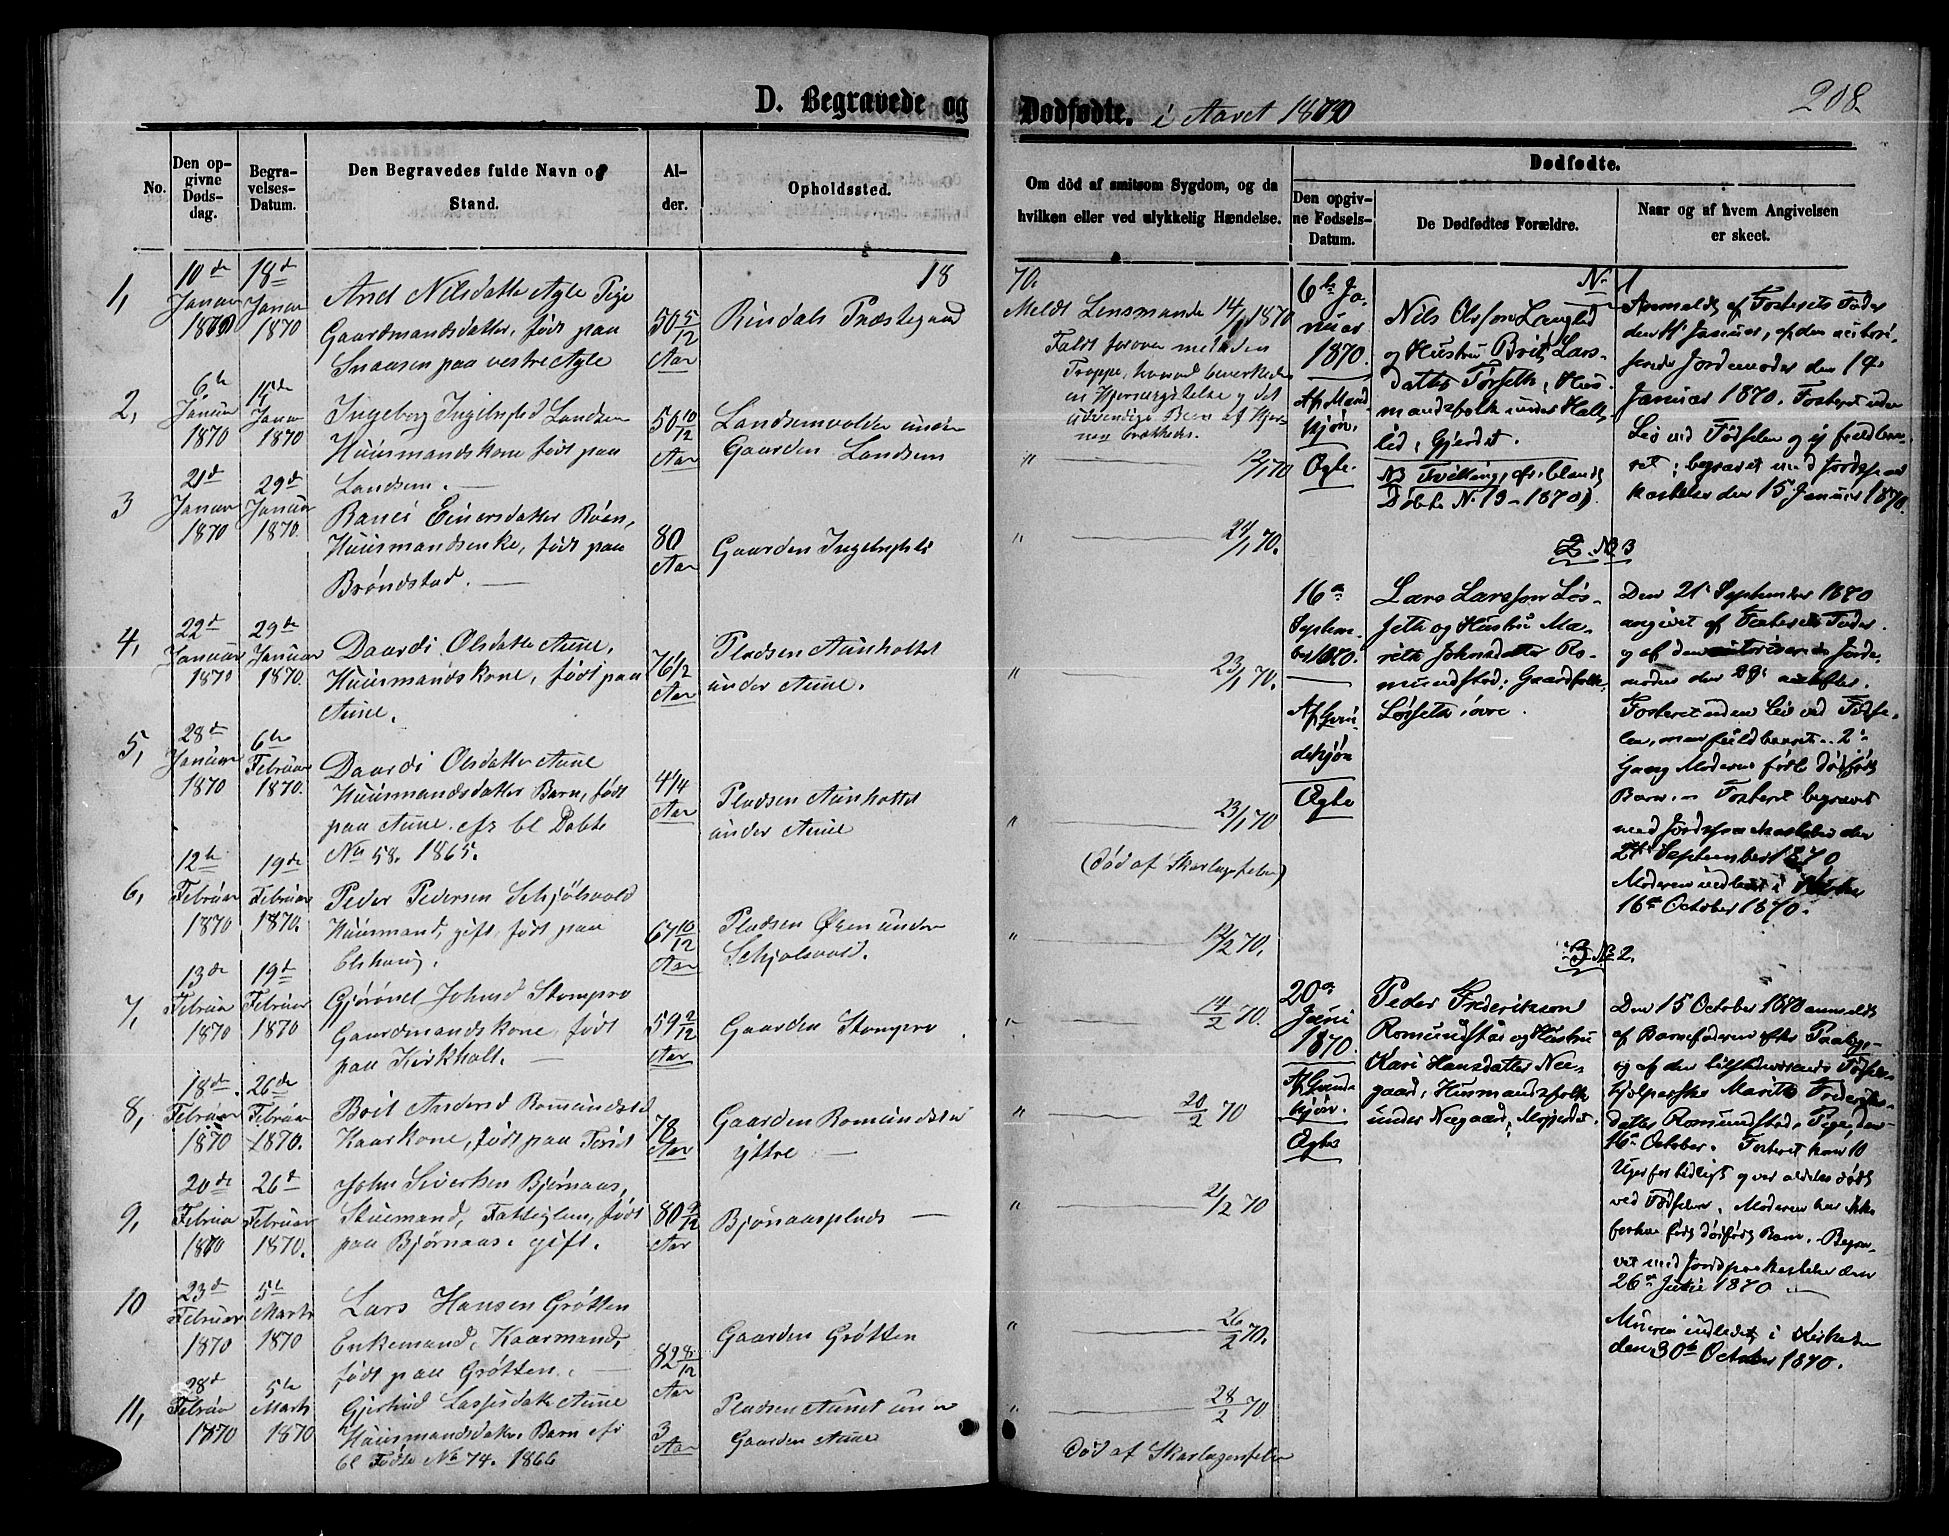 208.
D. Begravede og Dødfødte. i Aaret 1870
No.
Den opgivne Dødsdag.
Begravelses-Datum.
Den Begravedes fulde Navn og Stand.
Alder.
Opholdssted.
Om død af smitsom Sygdom, og da hvilken eller ved ulykkelig Hændelse.
Dødfødte.
Den opgivne Fødsels-Datum.
De Dødfødtes Forældre.
Naar og af hvem Angivelsen er skeet.
18 70.
1,
10de Januar 1870
18de Januar 1870
Nilsdatter Agle Pige
Gaardmandsdatter, født paa
Snaasen paa vestre Agle
50 5/12 Aar
Rindals Præstegaard
Meldt Lensmanden 14/1 1870
Faldt forover med den
Trappe, hvorved bevirkedes
en Hjernerystelse og det
udvendige Been af Hjer-
nen brækkedes.
2,
6te Januar 1870
Januar 1870
Ingeberg Landsem
Huusmandskone født paa
Landsem. —
50 10/12 Aar
Landsemvolden under
Gaarden Landsem
" — 12/1 70
3
21de Januar 1870
29de Januar 1870.
Einersdatter Røen,
Huusmandsenke, født paa
Brøndstad. —
80 Aar
Gaarden
" — 24/1 70.
4,
22de Januar 1870
29de Januar 1870.
Daardi Olsdatter Aune,
Huusmandskone, født paa
Aune.
76 1/2 Aar
Pladsen Aunholtet
under Aune.
" — 23/1 70.
5,
28de Januar 1870
6te Februar 1870.
Daardi Olsdatter Aune
Huusmandsdatter Barn, født
paa Aune. cfr bl Døbte
No 58. 1865.
4 1/4 Aar
Pladsen Aunholtet
under Aune
" — 23/1 70
(Død af Skarlagsfeber)
6,
12te Februar 1870
19de Februar 1870.
Peder Pedersen Schjølsvold
Huusmand, gift født paa
Elshaug.
67 10/12 Aar
Pladsen Øren under
Schjølsvold.
" — 12/2 70.
7,
13de Februar 1870
19de Februar 1870
Gjørønd Johnsd Stompro
Gaardmandskone, født
paa Kirkholt. —
59 2/12 Aar
Gaarden Stompro.
" — 14/2 70.
8,
18de Februar 1870
26de Februar 1870.
Brit Andersd Romundstd
Kaarkone, født paa
78 Aar
Gaarden Romundstad
yttre —
" — 20/2 70
9,
20de Februar 1870
26de Februar 1870.
John Sivertsen Bjørnaas,
Stuemand, Fattiglem, født
paa Bjørnaas. gift.
80 9/12 Aar
Bjønaasplads —
" — 21/2 70
10
23de Februar 1870
5te Marts 1870
Lars Hansen Grøtten
Enkemand, Kaarmand,
født paa Grøtten. —
82 8/12 Aar
Gaarden Grøtten
" — 26/2 70.
11,
28de Februar 1870
5te Marts 1870
Gjertrud Larsdatter Aune
Huusmandsdatter Barn cfr
bl Fødte No 74. 1866
3 Aar
Pladsen Aunet under
Gaarden Aune
" — 28/2 70
Død af Skarlagensfeber
No 1
6te Januar 1870.
Af Mandkjøn.
Ægte.
Nils Olsson Langlid
og Hustru Brit Lars-
datter Tørseth, Hus-
mandsfolk under Halt-
lid, Gjerdet.
NB Tvilling, cfr. blandt
Døbte N. 13-1870).
Anmeldt af Fosterets Fader
den Januar, af den autori-
serede Jordemoder den 14.
Januar 1870. Fosteret uden
Liv ved Fødselen og ej fuldbaa-
ret; begravet med Jordspaa-
kastelse den 15 Januar 1870.
2 NB 3
16de September 1870.
Af Qvindekjøn
Ægte
Lars Larsson Løs-
seth og Hustru Ma-
rith Johnsdatter Ro-
mundstad; Gaardfolk,
Løsseth øvre.
Den 21 September 1870
angivet af Fosterets Fader
og af den autoriserede Jorde-
moder den 29.
Fosteret uden Liv ved Fødse-
len, men fuldbaaret. 2
Gang Moderen fødte dødfødt
Barn. — Fosteret begravet
med Jordspaakastelse den
September 1870
Moderen indledet i Kirken
16de October 1870.
3 NB 2.
20de Juni 1870.
Af Qvindkjøn.
Ægte
Peder Frederikson
Romundstad og Hustru
Kari Hansdatter Nee-
gaard, Husmandsfolk
under Neegaard,
Den 15 October 1870 anmeldt
af Barnefaderen efter
og af den tilstedeværende Fødsels-
hjælperske Marit Frederiks-
datter Romundstad, Pige, den
16de October. Fosteret kom 10
Uger for tidligt og var aldeles dødt
ved Fødselen. Moderen har ikke
forhen født dødfødt Barn. Begra-
vet med Jordpaakastelse den
26de 1870. —
Moderen indledet i Kirken
den 30te October 1870.